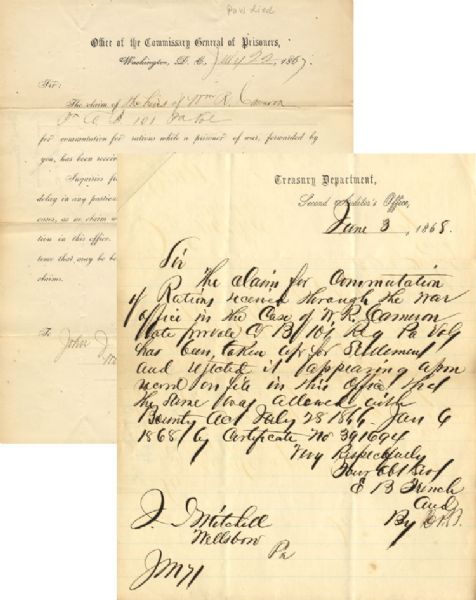 Office of the Commissary General of Prisoners,
Washington, D. C. July 22, 1867.
Sir:
The claim of the heirs of Wm R. Cameron
Co B 101 Pa Vol
for commutation for rations while a prisoner of war, forwarded by
you, has been receiv
Inquiries f
delay in any particu
cases, as no claim w
tion in this office.
tems that may be be
claims.
To John J.
Treasury Department,
Second Auditor's Office,
June 3, 1868.
Sir
The claim for Commutation
of Rations received through the War
Office in the Case of W. R. Cameron
late private Co B/101 Reg Pa Vols
has been taken up for Settlement
and rejected it appearing upon
record on file in this Office that
the same was allowed with
Bounty Act July 28 1866. Jan 6
1868 by Certificate No 391694
Very Respectfully
Your Obt Sevt
E B French
Aud
By
J. I Mitchell
Wellsboro
Pa